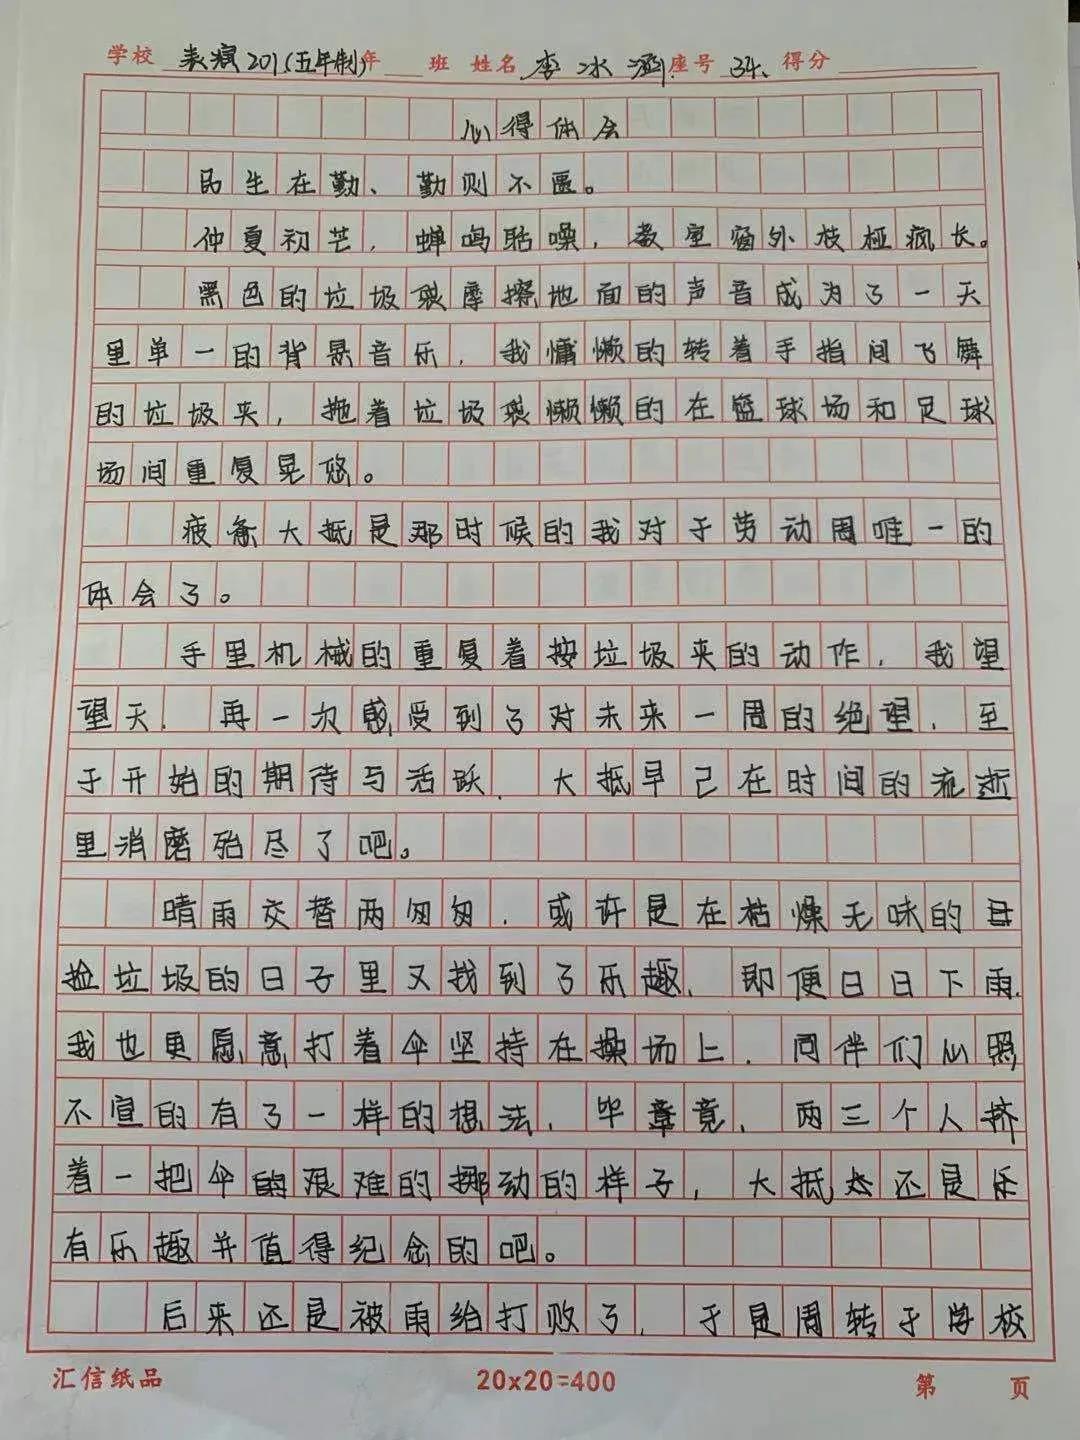 学校 表演201(五年制)年 班 姓名 李冰涵 座号 34. 得分
心得体会
民生在勤、勤则不匮。
仲夏初芒，蝉鸣聒噪，教室窗外枝桠疯长。
黑色的垃圾袋摩擦地面的声音成为了一天
里单一的背景音乐，我慵懒的转着手指间飞舞
的垃圾夹，拖着垃圾袋懒懒的在篮球场和足球
场间重复晃悠。
疲惫大抵是那时候的我对于劳动周唯一的
体会了。
手里机械的重复着按垃圾夹的动作，我望
望天，再一次感受到了对未来一周的绝望，至
于开始的期待与活跃，大抵早已在时间的流逝
里消磨殆尽了吧。
晴雨交替两匆匆，或许是在枯燥无味的
捡垃圾的日子里又找到了乐趣，即便日日下雨，
我也更愿意打着伞坚持在操场上，同伴们心照
不宣的有了一样的想法，毕章竟，两三个人挤
着一把伞的艰难的挪动的样子，大抵还是
有乐趣并值得纪念的吧。
后来还是被雨给打败了，于是周转于学校
汇信纸品 20x20=400 第 页